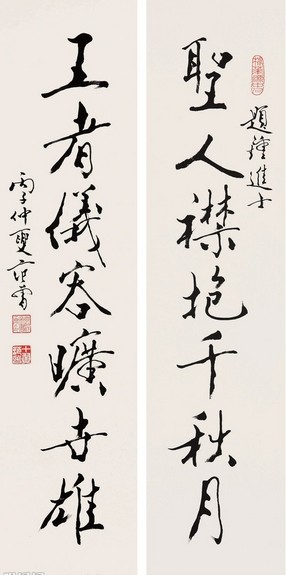 聖人襟抱千秋月
題鍾進士
王者儀容曠世雄
丙子仲夏范曾